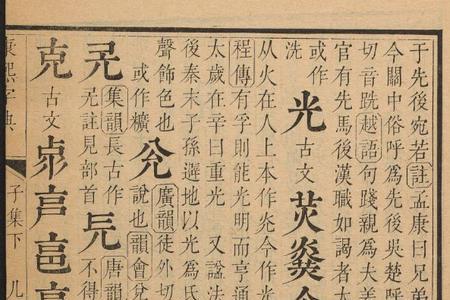 于先後宛若註孟康曰兄弟
今關中俗呼爲先後吳楚呼
切音跣越語句踐親爲夫差
官有先馬後漢職如謁者
或作
洗
光 古文 炗
从火在人上本作灮今作光
程傳有孚則能光明而亨通
太歲在辛曰重光 又諡法
後秦末子孫避地以光爲氏
聲飾色也
或作
兊
廣韻徒外切
說也韻會
集韻長古作
註見部首
唐韻
不得
克 古文
康熙字典 子集下 儿